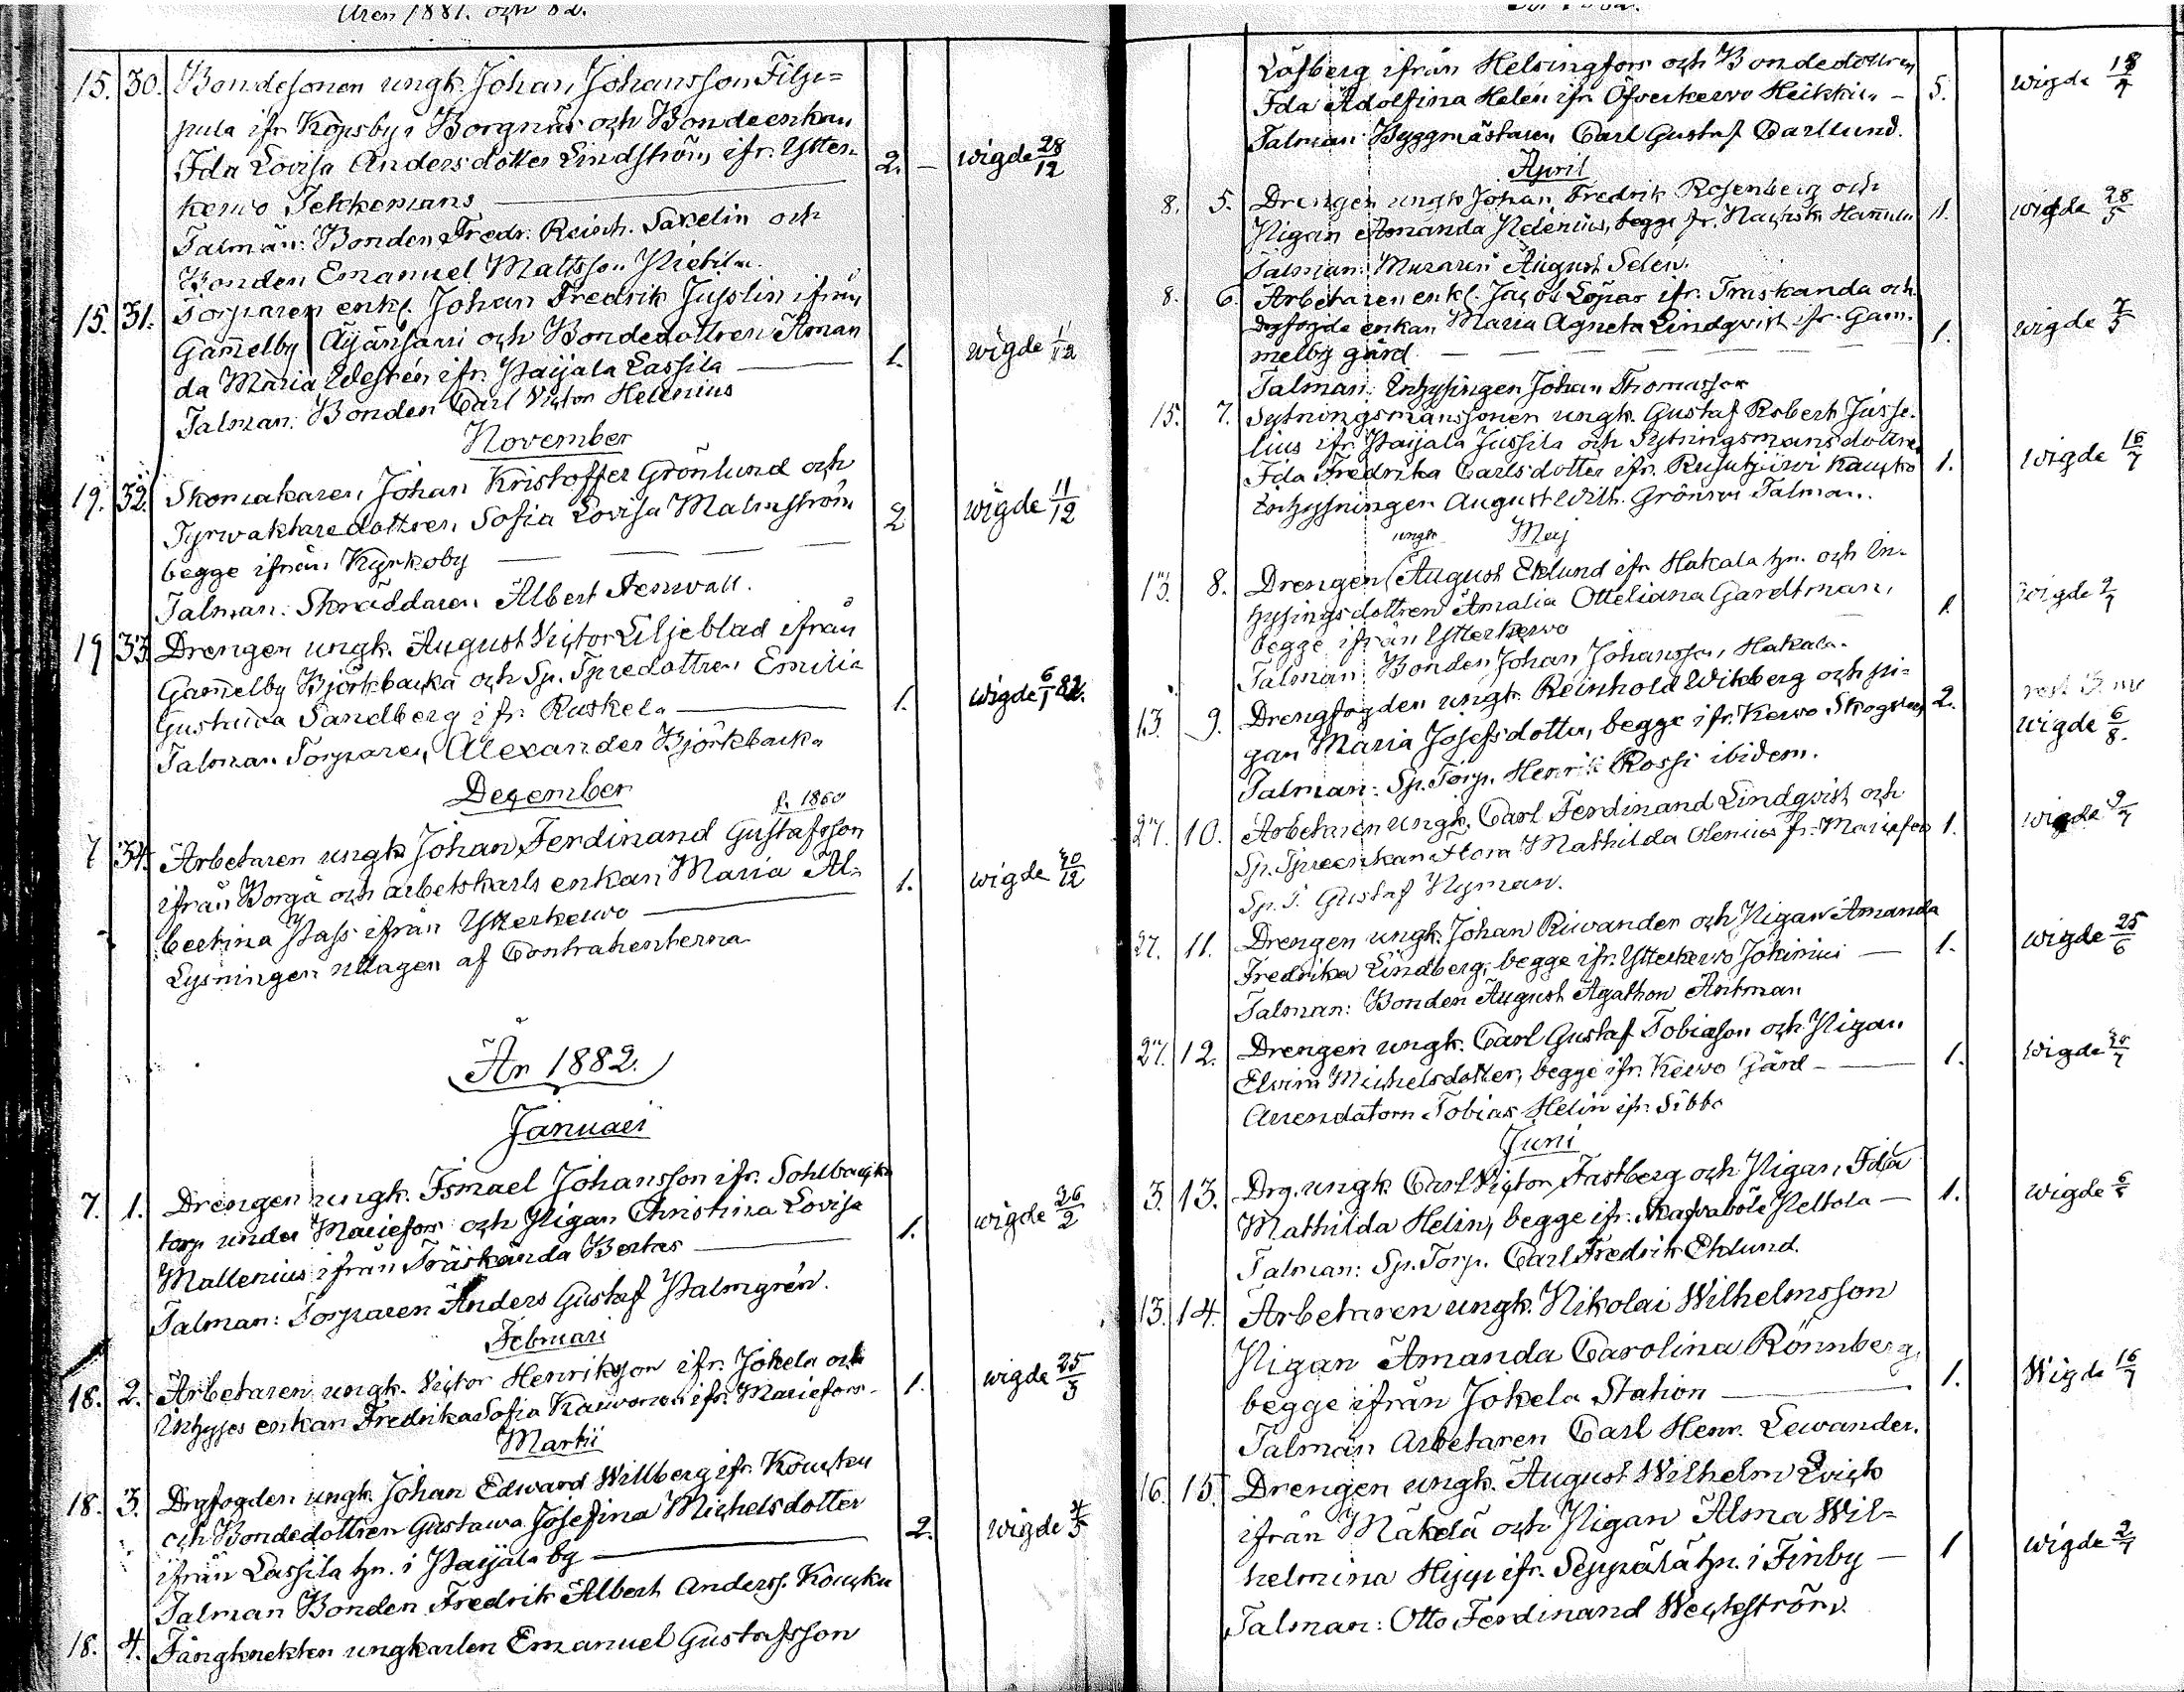 Åren 1881. och 82.
15. 30. Bondesonen ungk. Johan Johansson Filpu=
pula ifr. Kopsby i Borgnäs och Bondeenkan
Ida Lovisa Andersdotter Lindström, ifr. Ytter- 2. — wigde 28/12
kerwo Jekkomans
Talmän: Bonden Fredr. Reinh. Sakelin och
Bonden Emanuel Mattsson
15. 31. Torparen enkl. Johan Fredrik Jusslin ifrån
Gam̄elby Äijänsaari och Bondedottren Aman
da Maria Westén, ifr. Paijala Lassila 1. wigde 11/12
Talman: Bonden Carl Victor Helenius
November
19. 32. Skomakaren Johan Kristoffer Grönlund och
Tyrwaktaredottren Sofia Lovisa Malmström 2 wigde 11/12
begge ifrån Kyrkoby
Talman: Skräddaren Albert Stenwall.
19 33. Drengen ungk. August Victor Liljeblad ifrån
Gam̄elby Björkbacka och Sp. Tpredottren Emilia
Gustawa Sandberg ifr. Ruskela 1. wigde 6/1 82.
Talman Torparen Alexander Björkbacka
December
f. 1860
7 34. Arbetaren ungk. Johan Ferdinand Gustafsson
ifrån Borgå och arbetskarls enkan Maria Al- 1. wigde 30/12
bertina Pass ifrån Ytterkerwo
Lysningen uttagen af Contrahenterna
År 1882.
Januari
7. 1. Drengen ungk. Ismael Johansson ifr. Sohlbacka
torp under Mariefors och Pigan Christina Lovisa 1. wigde 26/2
Mallenius ifrån Träskända Bertas
Talman: Torparen Anders Gustaf Palmgrén.
Februari
18. 2. Arbetaren ungk. Victor Henriksson ifr. Jokela och 1. wigde 25/3
Inhyses enkan Fredrika Sofia ifr. Mariefors.
Martii
18. 3. Drgfogden ungk. Johan Edward Willberg ifr. Koucku
och Bondedottren Gustawa Josefina Michelsdotter 2. wigde
ifrån Lassila hn. i Paijala by
Talman Bonden Fredrik Albert Anderss. Koucku
18. 4. Fångknekten ungkarlen Emanuel Gustafsson
Löfberg ifrån Helsingfors och Bondedottren
Ida Adolfina Helén ifr. Öfverkerwo Heikkilä — 5. wigde 18/4
Talman: Byggmästaren Carl Gustaf Darllund.
April
8. 5. Drengen ungk. Johan Fredrik Rosenberg och
Pigan Amanda Helenius, begge fr. 11. wigde 28/5
Talman: Muraren August Selen.
8. 6. Arbetaren enkl. Jacob Löpar ifr. Träskända och
Drgfogde enkan Maria Agneta Lindqvist ifr. Gam- 1. wigde 7/5
melby gård
Talman: Inhysingen Johan Thomasson
15. 7. Sytningsmanssonen ungk. Gustaf Robert Jusse-
lius ifr. Paijala Jussila och Sytningsmansdottren
Ida Fredrika Carlsdotter ifr. Rusutjärwi Kaucko 1. wigde 16/7
Inhysningen August Wilh. Grönroos Talman.
Maj
13. 8. Drengen ungk. August Eklund ifr. Hakala hn. och In-
hysingsdottren Amalia Otteliana Gardtman, 1. wigde 2/7
begge ifrån Ytterkerwo
Talman Bonden Johan Johansson, Hakala.
13. 9. Drengfogden ungk. Reinhold Wikberg och pi- 2.
gan Maria Josefsdotter, begge ifr. Kerwo Skogster wigde 6/8.
Talman: Sp. Torp. Henrik Rossi ibidem.
27. 10. Arbetaren ungk. Carl Ferdinand Lindqvist och
Sp. Tpreenkan Flora Mathilda Olenius fr. Mariefors 1. wigde 9/7
Sp. T. Gustaf Nyman.
27. 11. Drengen ungk. Johan Riwander och Pigan Amanda
Fredrika Lindberg, begge ifr. Ytterkerwo Johinius 1. wigde 25/6
Talman: Bonden August Agathon Antman
27. 12. Drengen ungk. Carl Gustaf Tobiasson och Pigan
Elvira Michelsdotter, begge ifr. Kerwo Gård — 1. wigde 30/7
Arrendatorn Tobias Helin ifr. Sibbo
Juni
3. 13. Drg. ungk. Carl Victor Fastberg och Pigan, Ida
Mathilda Helin, begge ifr. Skafvaböle Peltola — 1. wigde
Talman: Sp. Torp. Carl Fredrik Eklund.
13. 14. Arbetaren ungk. Nikolai Wilhelmsson
Pigan Amanda Carolina Rönnberg,
begge ifrån Jokela Station 1. Wigde 16/7
Talman Arbetaren Carl Henr. Lewander.
16. 15. Drengen ungk. August Wilhelm Qvick
ifrån Mäkelä och Pigan Alma Wil-
helmina ifr. Seppälä hn. i Finby — 1 wigde 2/7
Talman: Otto Ferdinand Weckström.